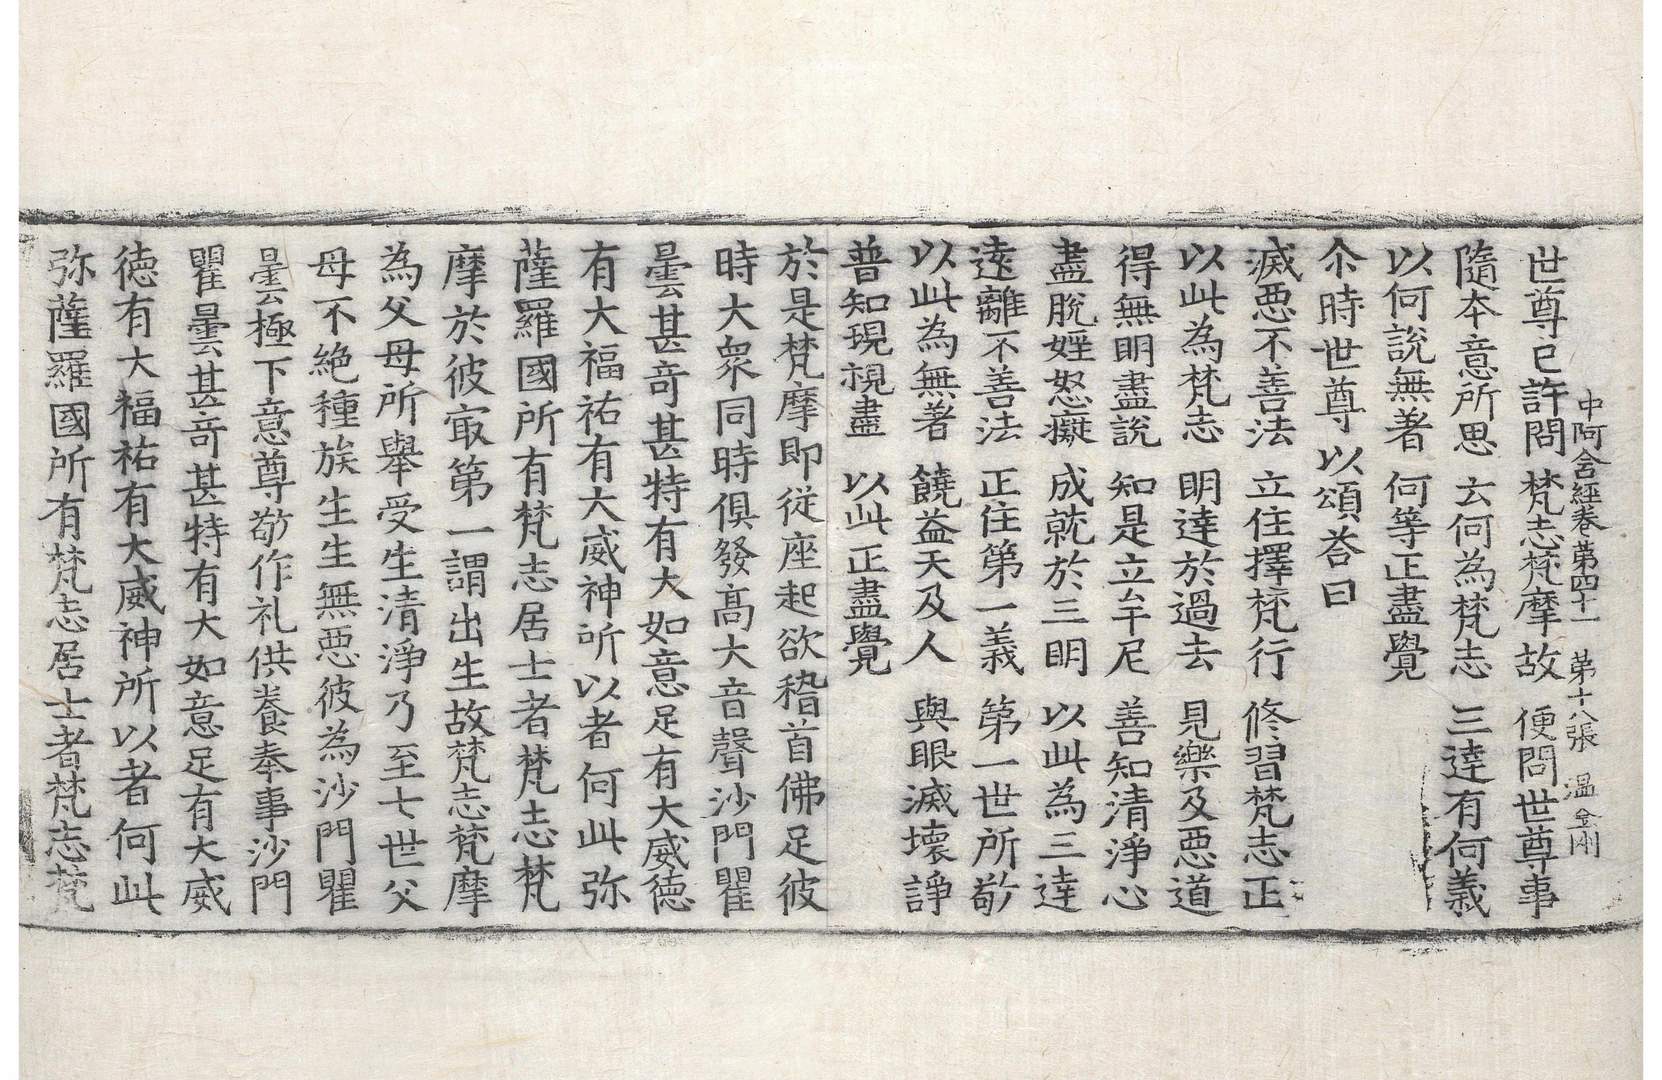 中阿含經卷第四十一 第十八張 溫 金剛
世尊已許問 梵志梵摩故 便問世尊事
隨本意所思 云何為梵志 三達有何義
以何說無著 何等正盡覺
尒時世尊以頌荅曰
滅惡不善法 立住擇梵行 修習梵志正
以此為梵志 明達於過去 見樂及惡道
得無明盡說 知是立牟尼 善知清淨心
盡脫婬怒癡 成就於三明 以此為三達
遠離不善法 正住第一義 第一世所敬
以此為無著 饒益天及人 與眼滅壞諍
普知現視盡 以此正盡覺
於是梵摩即從座起欲稽首佛足彼
時大衆同時俱發高大音聲沙門瞿
曇甚奇甚特有大如意足有大威德
有大福祐有大威神所以者何此弥
薩羅國所有梵志居士者梵志梵
摩於彼㝡第一謂出生故梵志梵摩
為父母所舉受生清淨乃至七世父
母不絕種族生生無惡彼為沙門瞿
曇極下意尊敬作礼供養奉事沙門
瞿曇甚奇甚特有大如意足有大威
德有大福祐有大威神所以者何此
弥薩羅國所有梵志居士者梵志梵